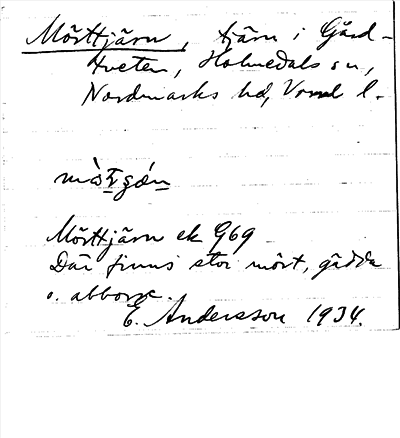 Mörttjärn, tjärn i Gård-
tveten, Holmedals sn,
Nordmarks hd, Vrml l.
Mörttjärn ek G69
Där finns stor mört, gädda
o. abborre.
E. Andersson 1934.